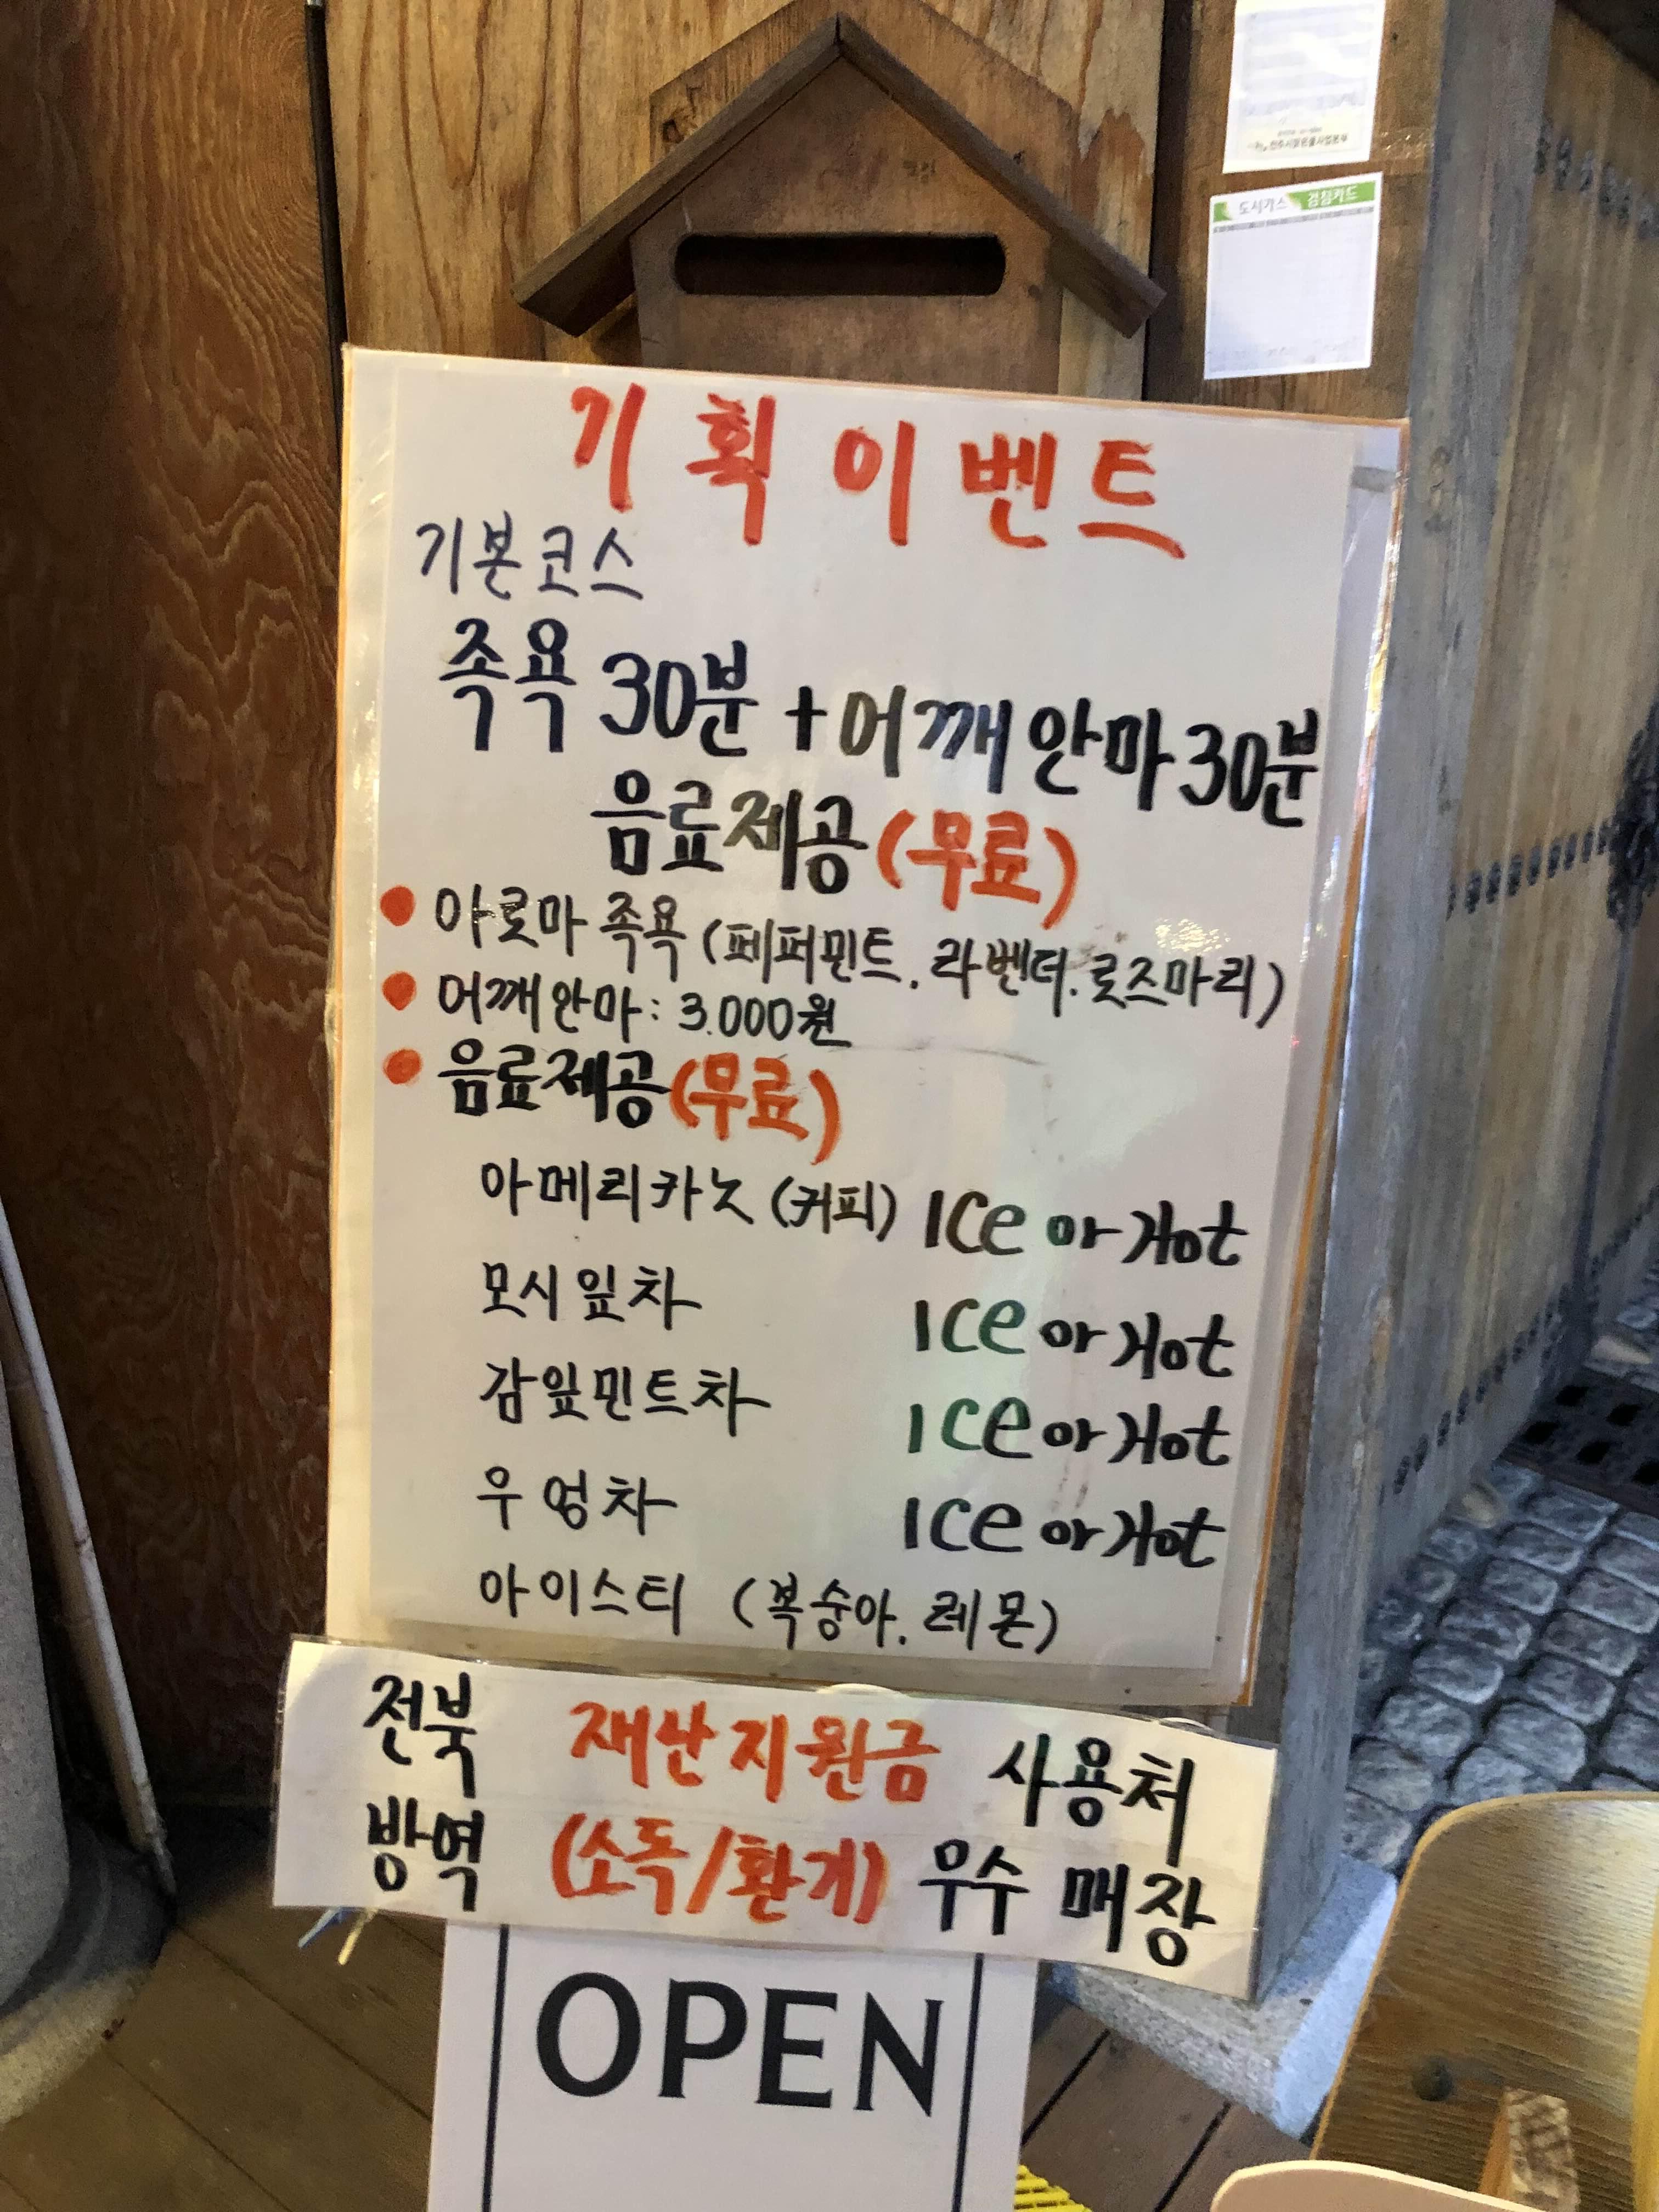 전주시맑은물사업본부
도시가스 검침카드
기획이벤트
기본코스
족욕 30분 + 어깨안마 30분
음료제공 (무료)
● 아로마 족욕 (페퍼민트. 라벤더. 로즈마리)
● 어깨안마 : 3.000원
● 음료제공 (무료)
아메리카노 (커피) ICe or Hot
모시잎차 ICe or Hot
감잎민트차 ICe or Hot
우엉차 ICe or Hot
아이스티 (복숭아. 레몬)
전북 재난지원금 사용처
방역 (소독/환기) 우수 매장
OPEN